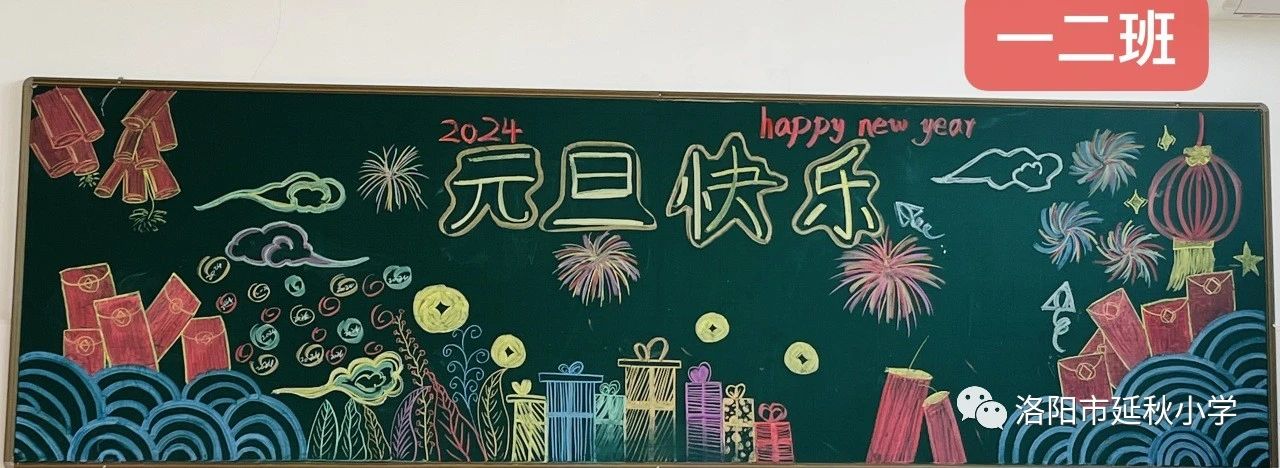 一二班
2024
happy new year
元旦快乐
洛阳市延秋小学